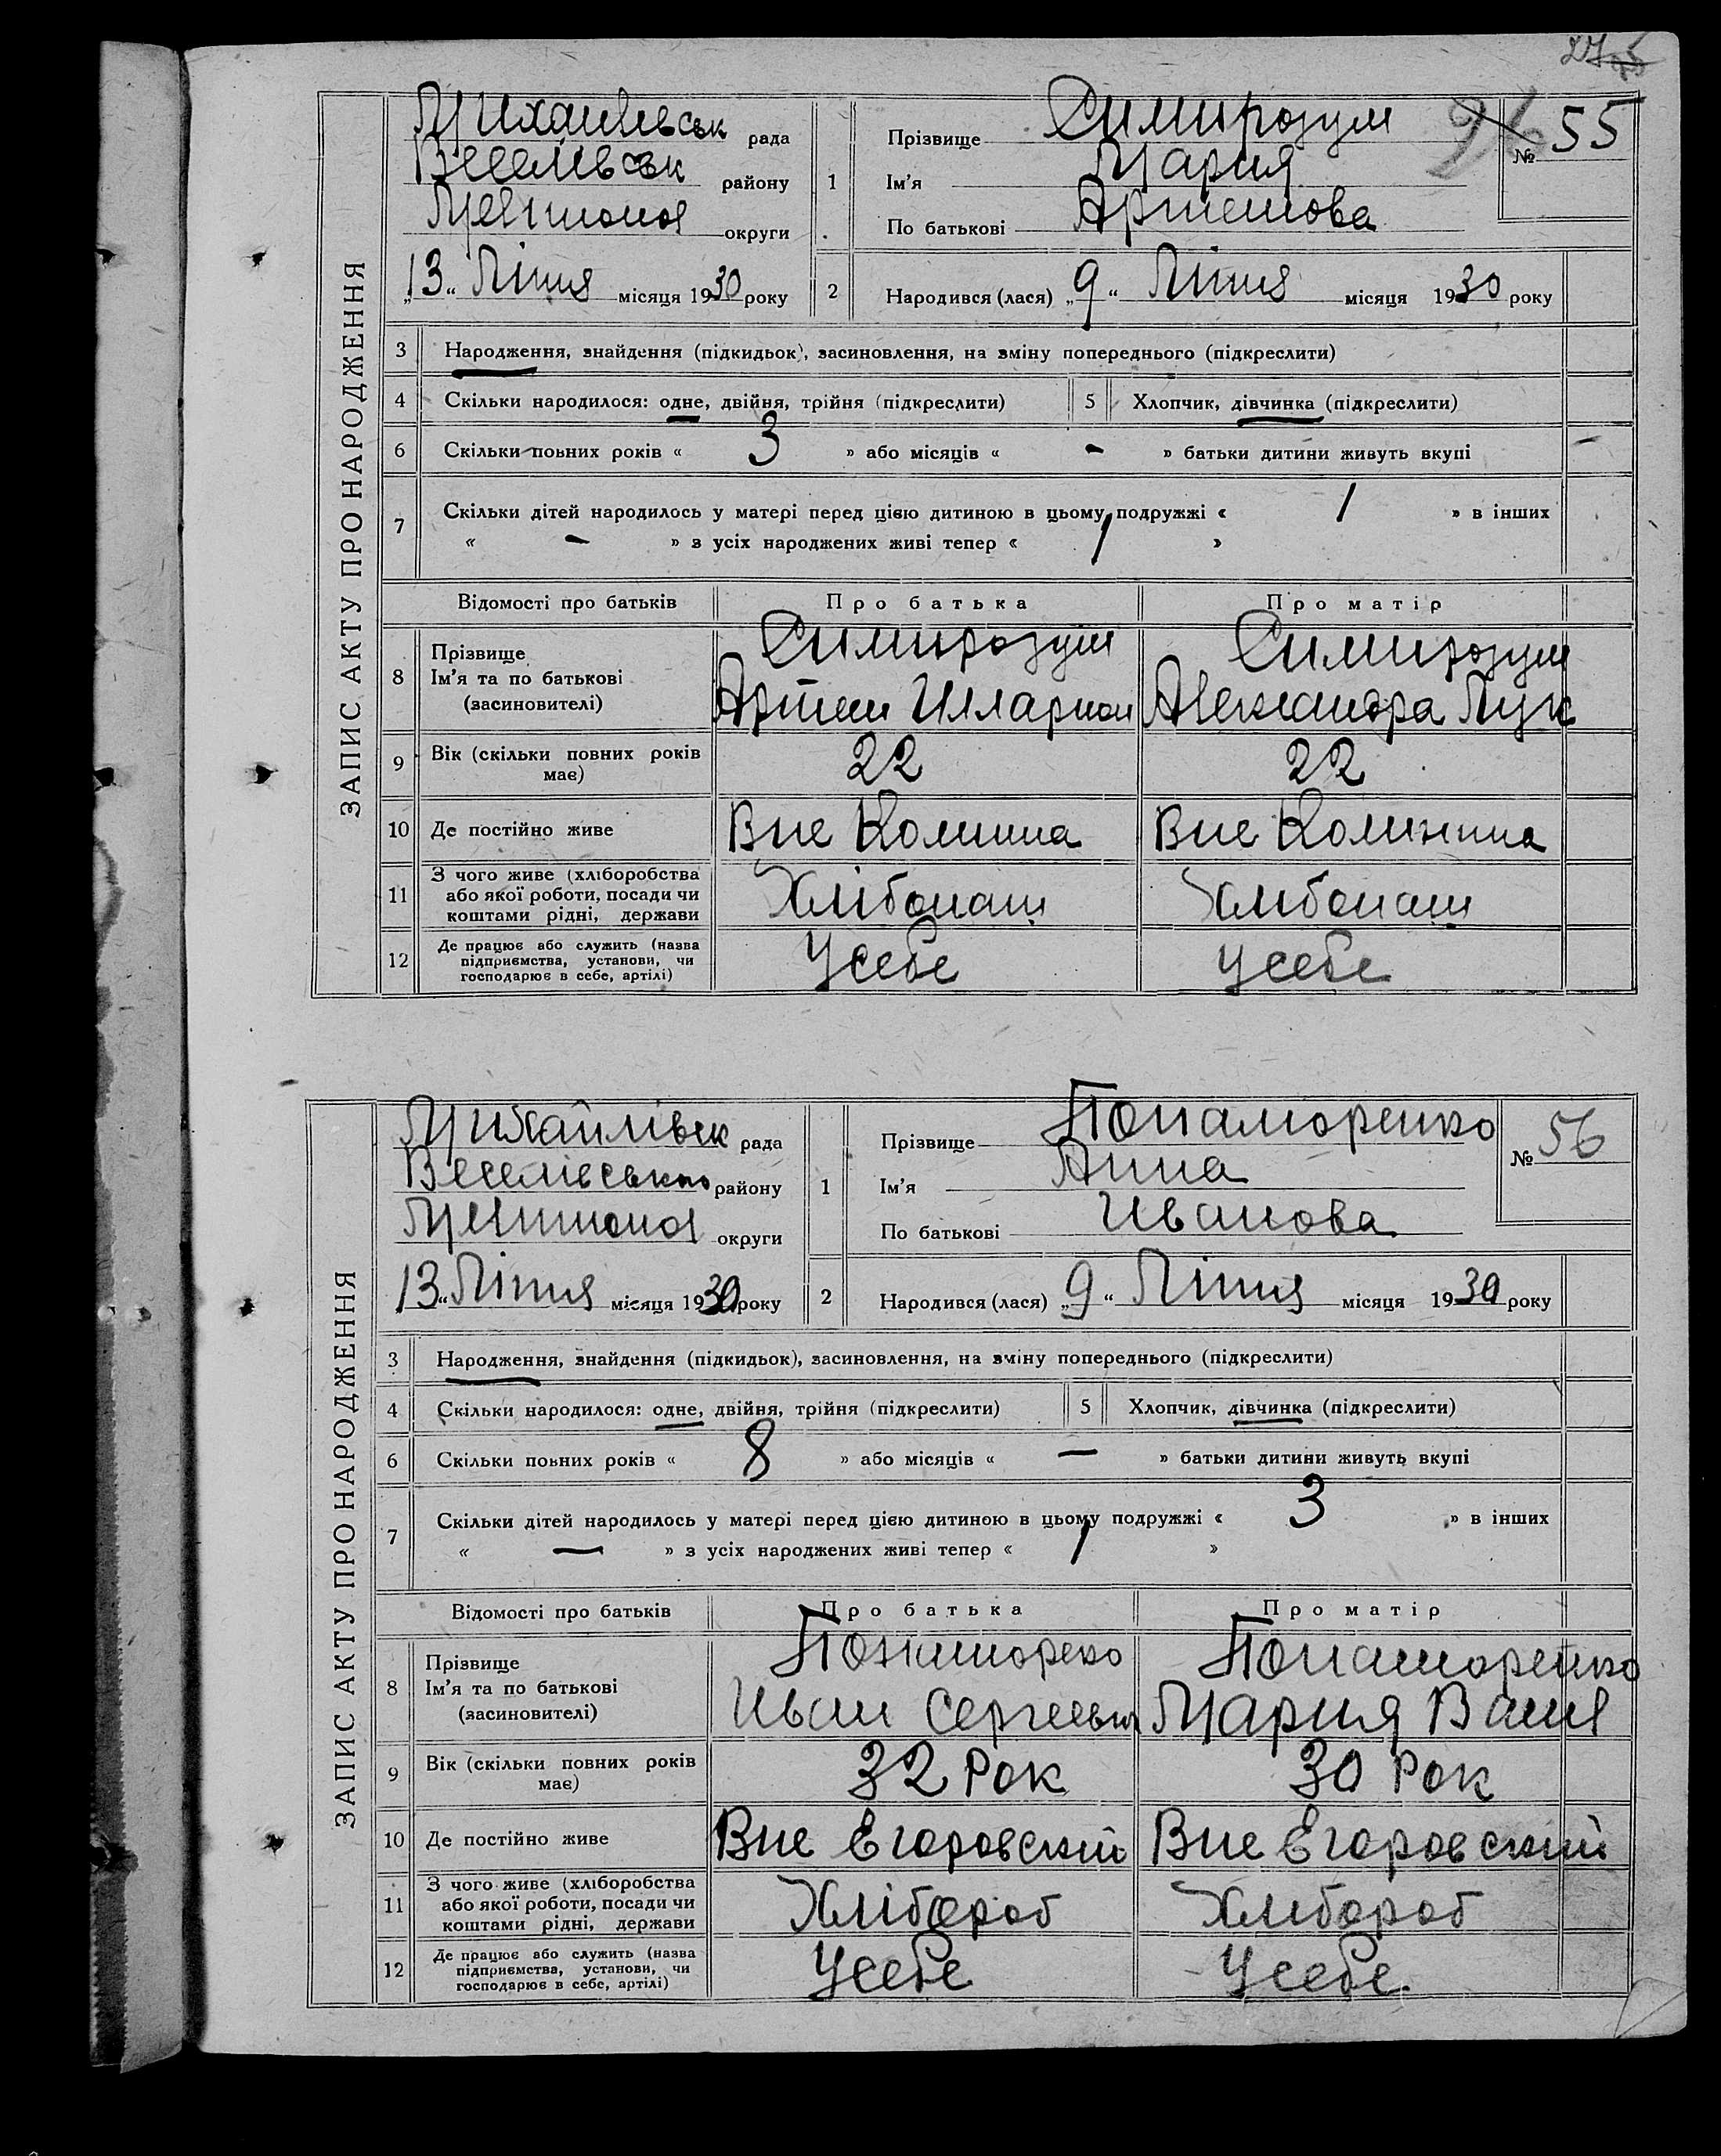 27
ЗАПИС АКТУ ПРО НАРОДЖЕННЯ
рада
Веселівськ району
округи
„13“ Ліпня місяця 1930 року
1
Прізвище Симирозум
Ім’я Мария
По батькові Артемова
№ 55
2 Народився (лася) „9“ Ліпня місяця 1930 року
3 Народження, знайдення (підкидьок), засиновлення, на зміну попереднього (підкреслити)
4 Скільки народилося: одне, двійня, трійня (підкреслити) 5 Хлопчик, дівчинка (підкреслити)
6 Скільки повних років « 3 » або місяців « - » батьки дитини живуть вкупі -
7 Скільки дітей народилось у матері перед цією дитиною в цьому подружжі « 1 » в інших
« - » з усіх народжених живі тепер « 1 »
Відомості про батьків Про батька Про матір
8 Прізвище
Ім’я та по батькові
(засиновителі)
Симирозум
Артем Иллариои
Симирозум
Александра Лук
9 Вік (скільки повних років
має)
22 22
10 Де постійно живе Вне Колинина Вне Колинина
11 З чого живе (хліборобства
або якої роботи, посади чи
коштами рідні, держави
Хлібопаш Хлибопаш
12 Де працює або служить (назва
підприємства, установи, чи
господарює в себе, артілі)
Усебе Усебе
ЗАПИС АКТУ ПРО НАРОДЖЕННЯ
Михайлівск рада
Веселівського району
округи
13“ Ліпня місяця 1930 року
1
Прізвище Понаморенко
Ім’я Анна
По батькові Иванова
№ 56
2 Народився (лася) „9“ Ліпня місяця 1930 року
3 Народження, знайдення (підкидьок), засиновлення, на зміну попереднього (підкреслити)
4 Скільки народилося: одне, двійня, трійня (підкреслити) 5 Хлопчик, дівчинка (підкреслити)
6 Скільки повних років « 8 » або місяців « — » батьки дитини живуть вкупі
7 Скільки дітей народилось у матері перед цією дитиною в цьому подружжі « 3 » в інших
« — » з усіх народжених живі тепер « 1 »
Відомості про батьків Про батька Про матір
8 Прізвище
Ім’я та по батькові
(засиновителі)
Понаморенко
Иван Сергеевич
Понаморенко
Мария Васил
9 Вік (скільки повних років
має)
32 Рок 30 Рок
10 Де постійно живе Вне Егоровский Вне Егоровский
11 З чого живе (хліборобства
або якої роботи, посади чи
коштами рідні, держави
Хлібороб Хлибороб
12 Де працює або служить (назва
підприємства, установи, чи
господарює в себе, артілі)
Усебе Усебе.